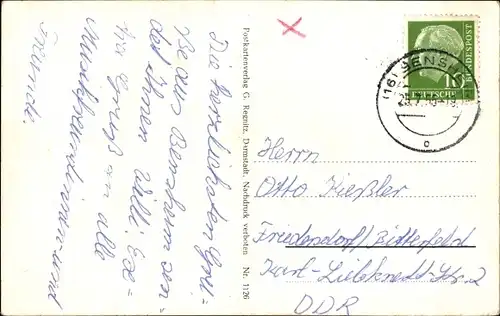 Die herzlichsten Grü-
ße aus Bensheim sen-
det Ihnen Willi.
Gruß an alle
Musikfreundinnen und
Freunde.
Postkartenverlag G. Regnitz, Darmstadt. Nachdruck verboten Nr. 1126
DEUTSCHE BUNDESPOST
10
(16) BENSH
Herrn
Otto Kießler
Friedersdorf/Bitterfeld
Karl-Liebknecht-Str. 2
DDR